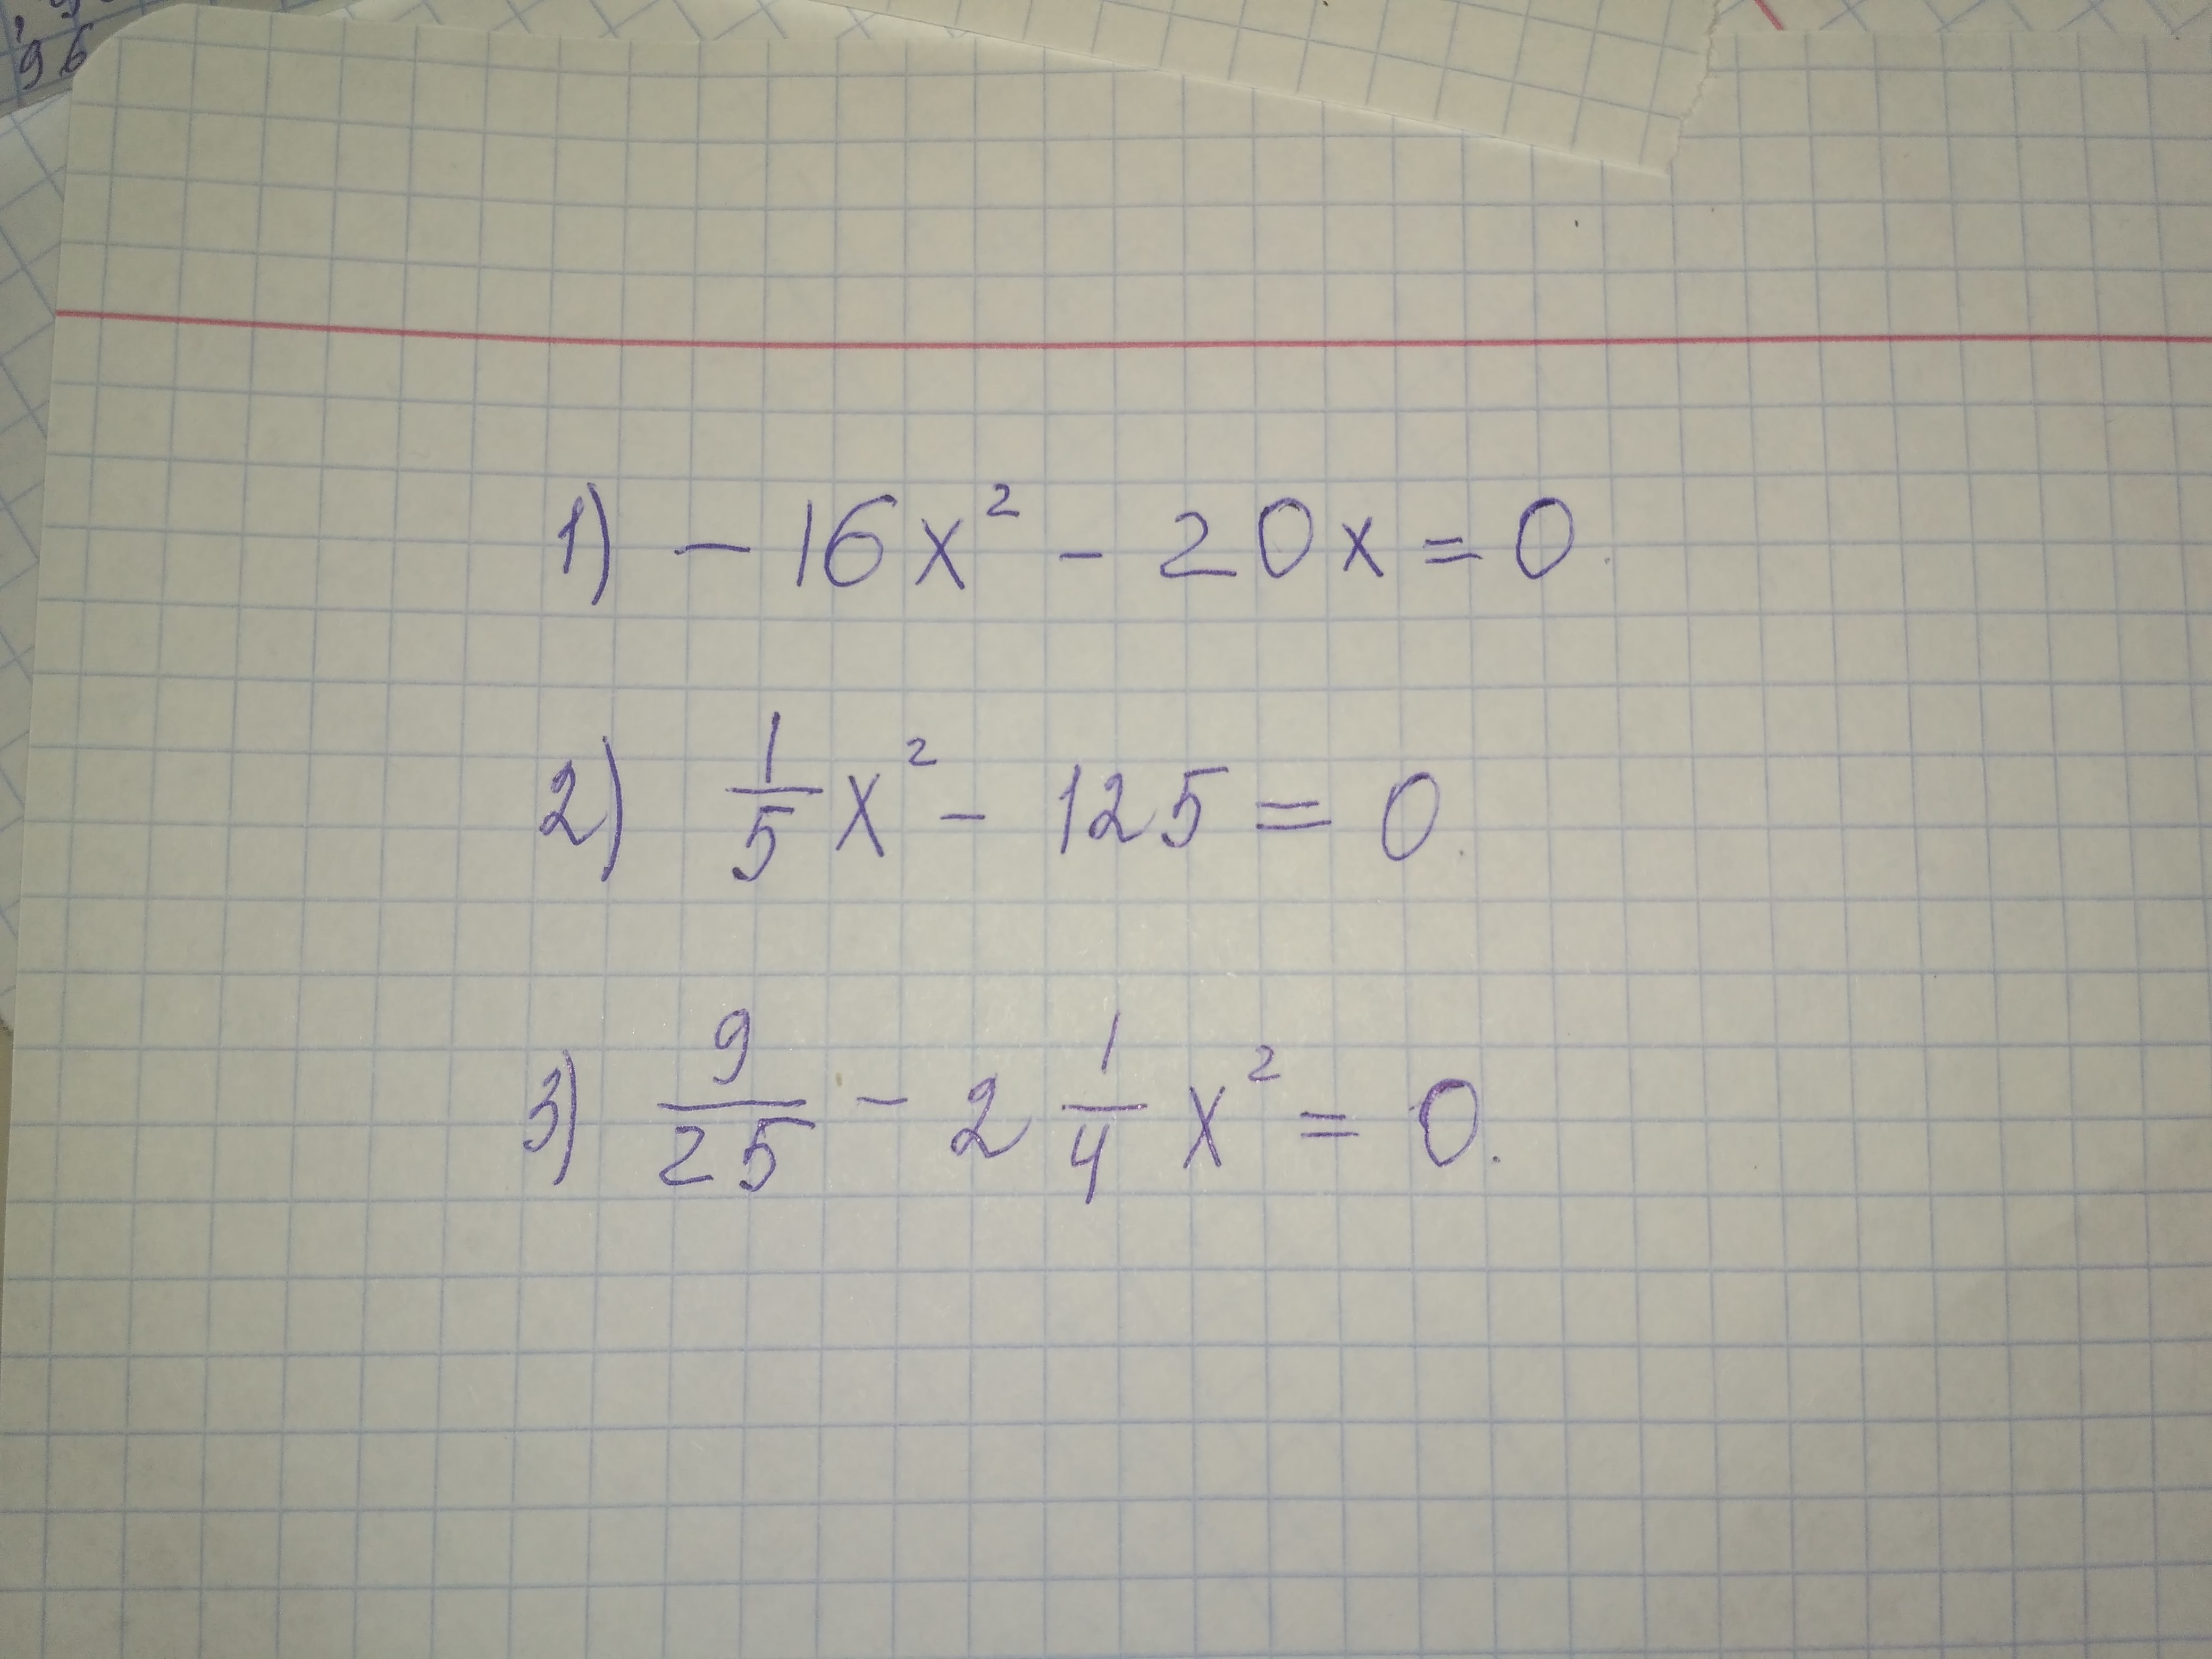 96
1) - 16x² - 20x = 0.
2) 1/5 x² - 125 = 0.
3) 9/25 - 2 1/4 x² = 0.